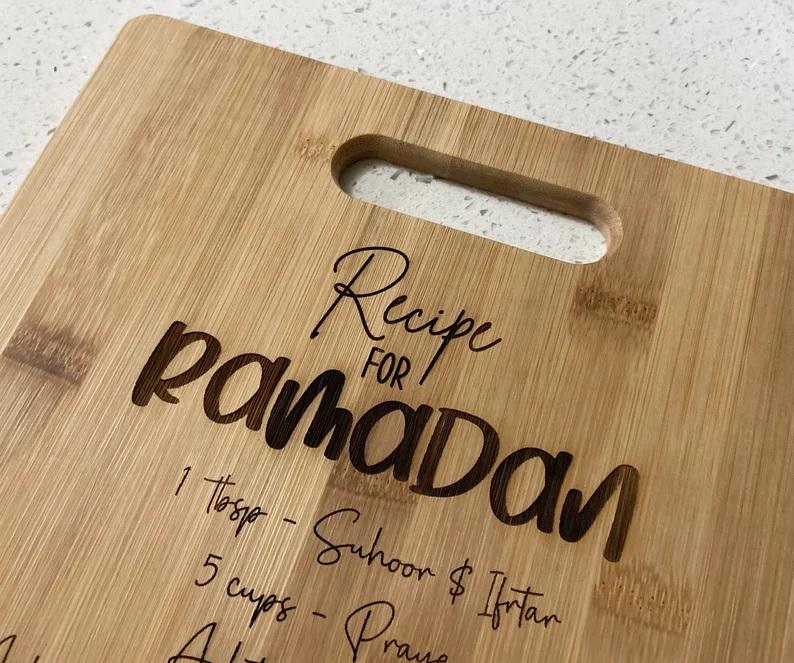 Recipe
FOR
RamaDan
1 tbsp - Suhoor & Ifrtar
5 cups -